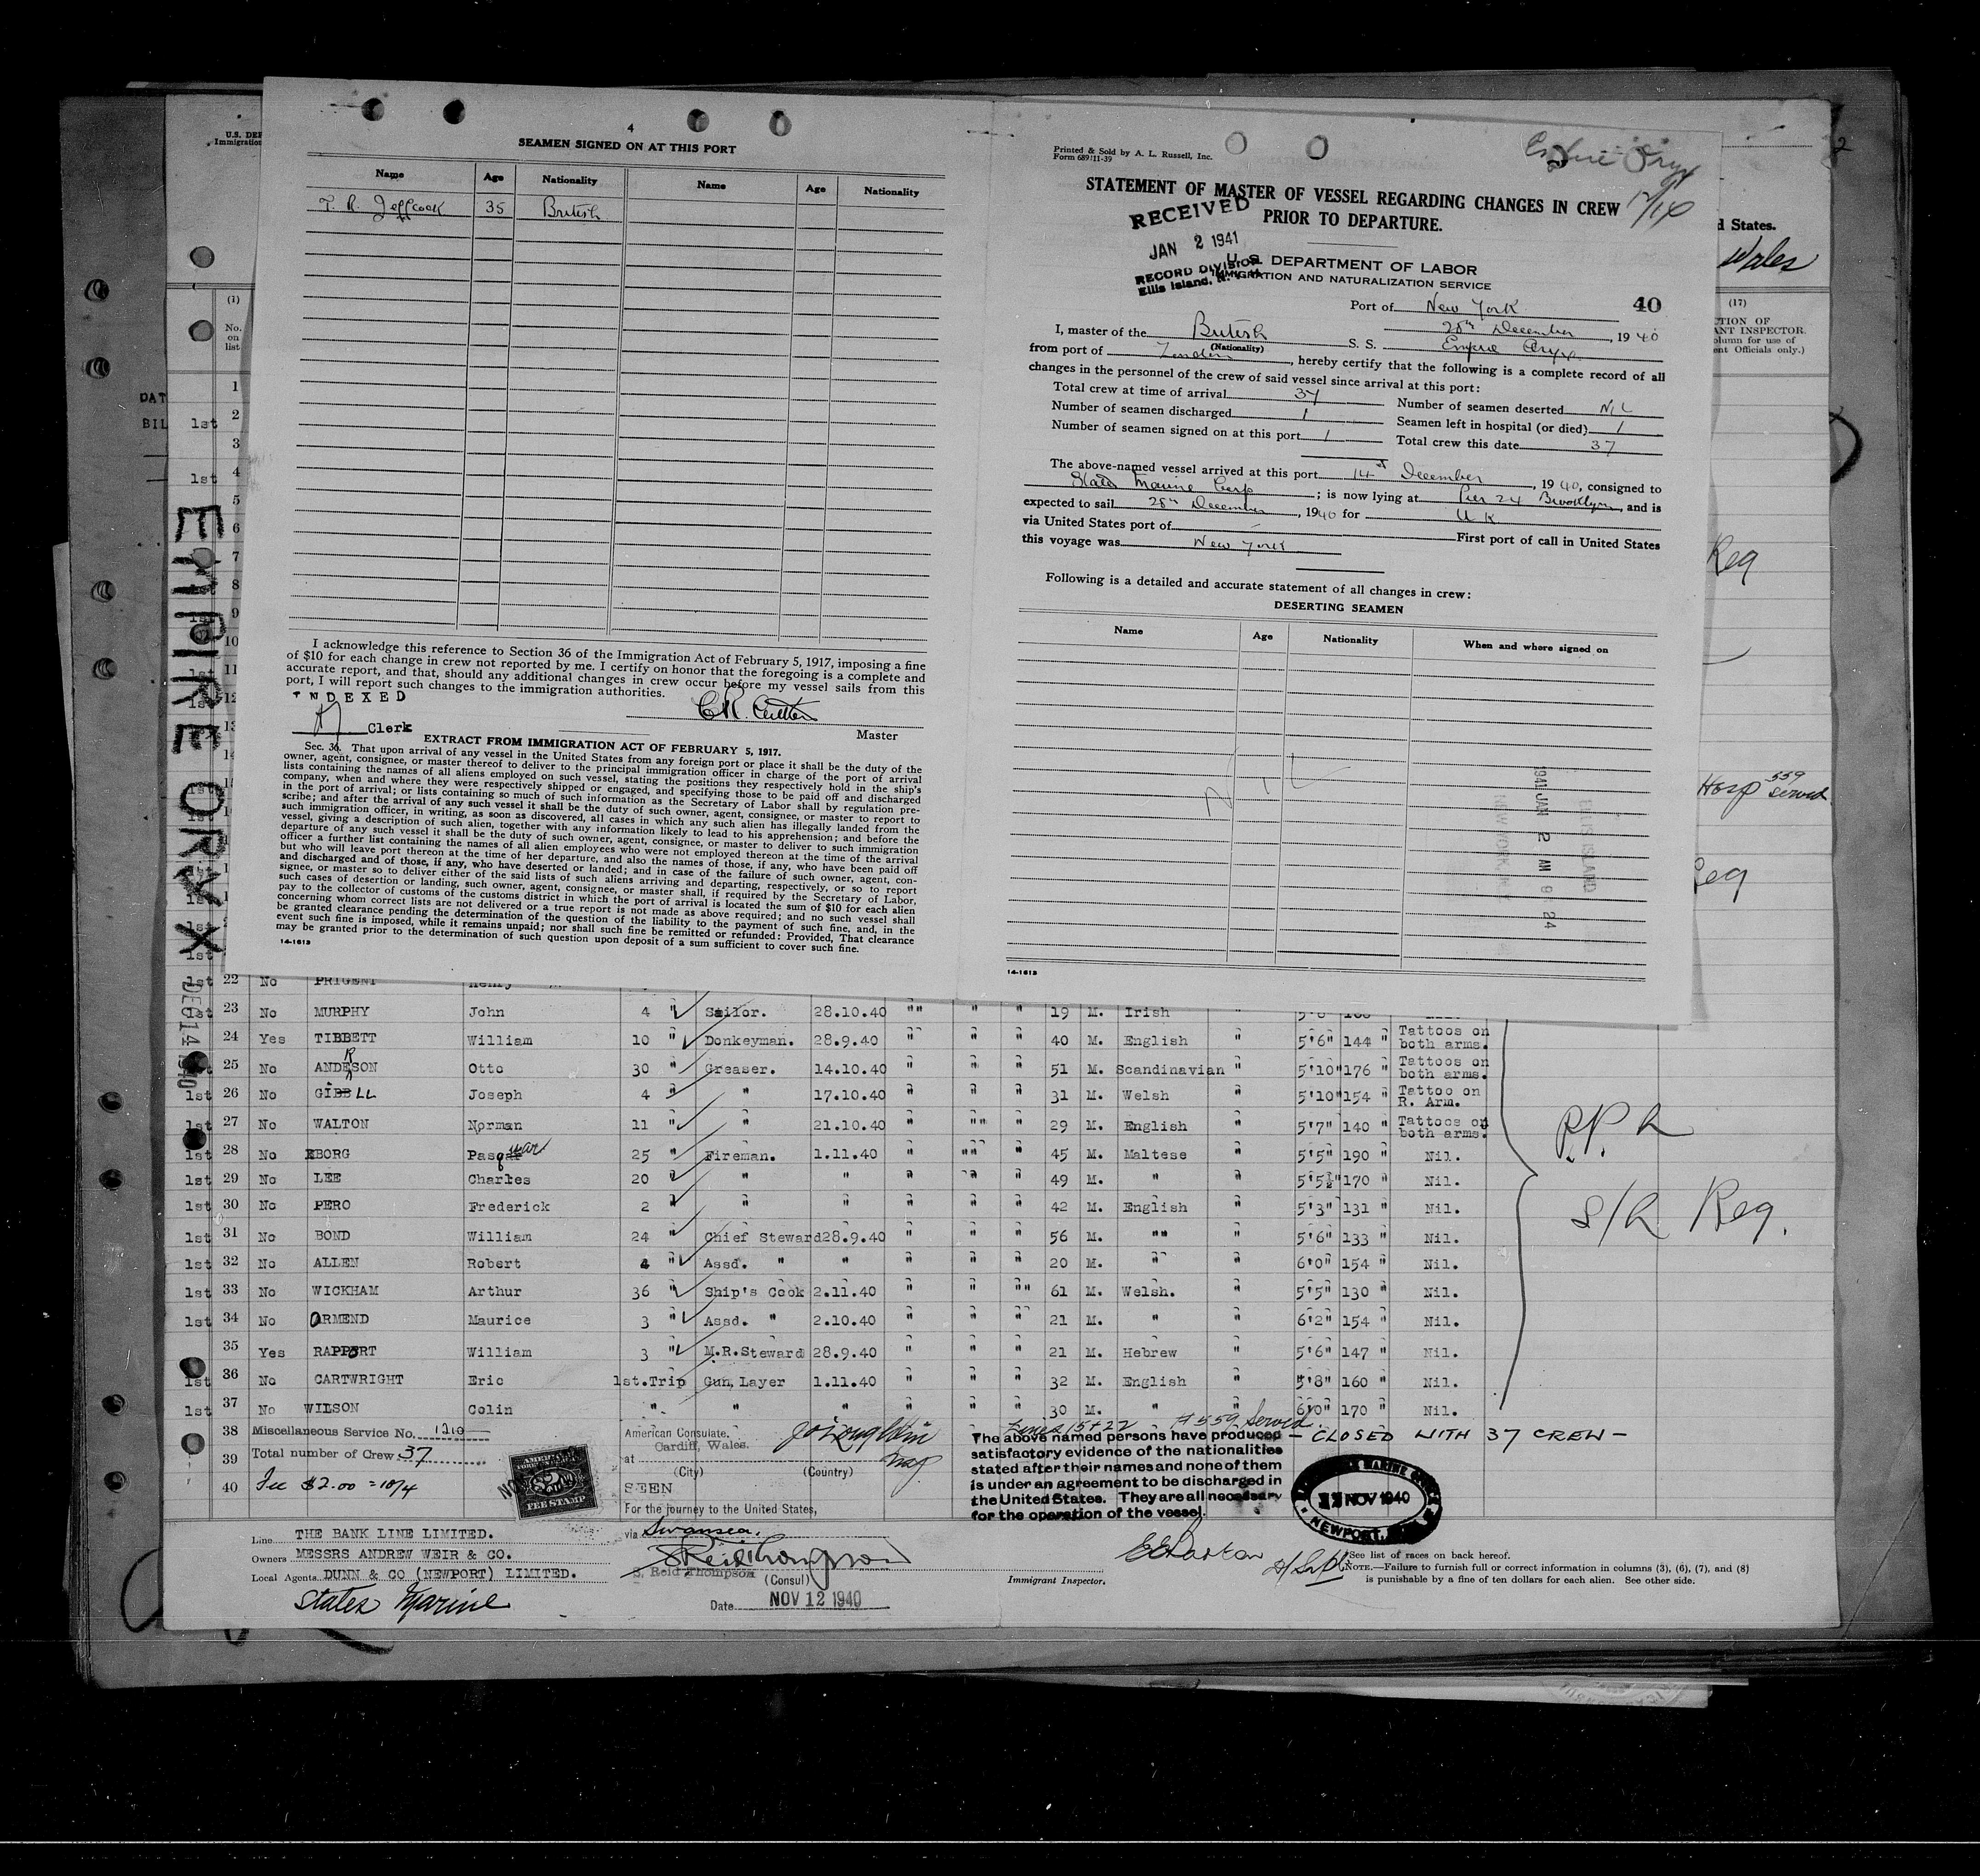 4
SEAMEN SIGNED ON AT THIS PORT
Name Age Nationality Name Age Nationality
T. R. Jeffcock 35 British
I acknowledge this reference to Section 36 of the Immigration Act of February 5, 1917, imposing a fine
of $10 for each change in crew not reported by me. I certify on honor that the foregoing is a complete and
accurate report, and that, should any additional changes in crew occur before my vessel sails from this
port, I will report such changes to the immigration authorities.
INDEXED
Clerk
Master
EXTRACT FROM IMMIGRATION ACT OF FEBRUARY 5, 1917.
Sec. 36. That upon arrival of any vessel in the United States from any foreign port or place it shall be the duty of the
owner, agent, consignee, or master thereof to deliver to the principal immigration officer in charge of the port of arrival
lists containing the names of all aliens employed on such vessel, stating the positions they respectively hold in the ship's
company, when and where they were respectively shipped or engaged, and specifying those to be paid off and discharged
in the port of arrival; or lists containing so much of such information as the Secretary of Labor shall by regulation pre-
scribe; and after the arrival of any such vessel it shall be the duty of such owner, agent, consignee, or master to report to
such immigration officer, in writing, as soon as discovered, all cases in which any such alien has illegally landed from the
vessel, giving a description of such alien, together with any information likely to lead to his apprehension; and before the
departure of any such vessel it shall be the duty of such owner, agent, consignee, or master to deliver to such immigration
officer a further list containing the names of all alien employees who were not employed thereon at the time of the arrival
but who will leave port thereon at the time of her departure, and also the names of those, if any, who have been paid off
and discharged and of those, if any, who have deserted or landed; and in case of the failure of such owner, agent, con-
signee, or master so to deliver either of the said lists of such aliens arriving and departing, respectively, or so to report
such cases of desertion or landing, such owner, agent, consignee, or master shall, if required by the Secretary of Labor,
pay to the collector of customs of the customs district in which the port of arrival is located the sum of $10 for each alien
concerning whom correct lists are not delivered or a true report is not made as above required; and no such vessel shall
be granted clearance pending the determination of the question of the liability to the payment of such fine, and, in the
event such fine is imposed, while it remains unpaid; nor shall such fine be remitted or refunded: Provided, That clearance
may be granted prior to the determination of such question upon deposit of a sum sufficient to cover such fine.
14-1613
Printed & Sold by A. L. Russell, Inc.
Form 689 11-39
STATEMENT OF MASTER OF VESSEL REGARDING CHANGES IN CREW
PRIOR TO DEPARTURE.
RECEIVED
JAN 2 1941
RECORD DIVISION
Ellis Island, N. Y. H.
U. S. DEPARTMENT OF LABOR
IMMIGRATION AND NATURALIZATION SERVICE
Port of New York 40
28th December, 1940
I, master of the British S. S. Empire Oryx
(Nationality)
from port of London, hereby certify that the following is a complete record of all
changes in the personnel of the crew of said vessel since arrival at this port:
Total crew at time of arrival 37 Number of seamen deserted NIL
Number of seamen discharged 1 Seamen left in hospital (or died) 1
Number of seamen signed on at this port 1 Total crew this date 37
The above-named vessel arrived at this port 14th December, 1940, consigned to
States Marine Corp; is now lying at Pier 24 Brooklyn, and is
expected to sail 28th December, 1940 for U K
via United States port of First port of call in United States
this voyage was New York
Following is a detailed and accurate statement of all changes in crew:
DESERTING SEAMEN
Name Age Nationality When and where signed on
NIL
1941 JAN 2 AM 9 24
ELLIS ISLAND
NEW YORK
14-1613
d States.
Wales
(17)
Reg
Hosp 559 served
Reg
(1)
No. on list
EMPIRE ORYX
DEC 14 1940
1st 22 No PRIGENT Henry
1st 23 No MURPHY John 4 " Sailor. 28.10.40 " " " 19 M. Irish "
24 Yes TIBBETT William 10 " Donkeyman. 28.9.40 " " " 40 M. English " 5'6" 144 " Tattoos on both arms.
1st 25 No ANDERSON Otto 30 " Greaser. 14.10.40 " " " 51 M. Scandinavian " 5'10" 176 " Tattoos on both arms.
1st 26 No GIBLL Joseph 4 " " 17.10.40 " " " 31 M. Welsh " 5'10" 154 " Tattoo on R. Arm.
1st 27 No WALTON Norman 11 " " 21.10.40 " " " 29 M. English " 5'7" 140 " Tattoos on both arms.
1st 28 No BORG 25 " Fireman. 1.11.40 " " " 45 M. Maltese " 5'5" 190 " Nil.
1st 29 No LEE Charles 20 " " " " " " 49 M. " " 5'5½" 170 " Nil.
1st 30 No PERO Frederick 2 " " " " " " 42 M. English " 5'3" 131 " Nil.
1st 31 No BOND William 24 " Chief Steward 28.9.40 " " " 56 M. " " 5'6" 133 " Nil.
1st 32 No ALLEN Robert 4 " Assd. " " " " " 20 M. " " 6'0" 154 " Nil.
1st 33 No WICKHAM Arthur 36 " Ship's Cook 2.11.40 " " " 61 M. Welsh. " 5'5" 130 " Nil.
1st 34 No ORMEND Maurice 3 " Assd. " 2.10.40 " " " 21 M. " " 6'2" 154 " Nil.
35 Yes RAPPORT William 3 " M.R.Steward 28.9.40 " " " 21 M. Hebrew " 5'6" 147 " Nil.
1st 36 No CARTWRIGHT Eric 1st.Trip Gun Layer 1.11.40 " " " 32 M. English " 5'8" 160 " Nil.
1st 37 No WILSON Colin " " " " " " 30 M. " " 6'0" 170 " Nil.
S/R Reg.
38 Miscellaneous Service No. 1210
39 Total number of Crew 37
40 Fee $2.00 = 10/4
FEE STAMP
American Consulate.
at Cardiff, Wales.
(City) (Country)
SEEN
For the journey to the United States,
via Swansea.
S. Reid Thompson
(Consul)
Date NOV 12 1940
Lines 15+22 #559 Served
The above named persons have produced
satisfactory evidence of the nationalities
stated after their names and none of them
is under an agreement to be discharged in
the United States. They are all necessary
for the operation of the vessel.
- CLOSED WITH 37 CREW -
12 NOV 1940
NEWPORT
Immigrant Inspector.
Line THE BANK LINE LIMITED.
Owners MESSRS ANDREW WEIR & CO.
Local Agents DUNN & CO (NEWPORT) LIMITED.
States Marine
See list of races on back hereof.
NOTE.—Failure to furnish full or correct information in columns (3), (6), (7), and (8)
is punishable by a fine of ten dollars for each alien. See other side.